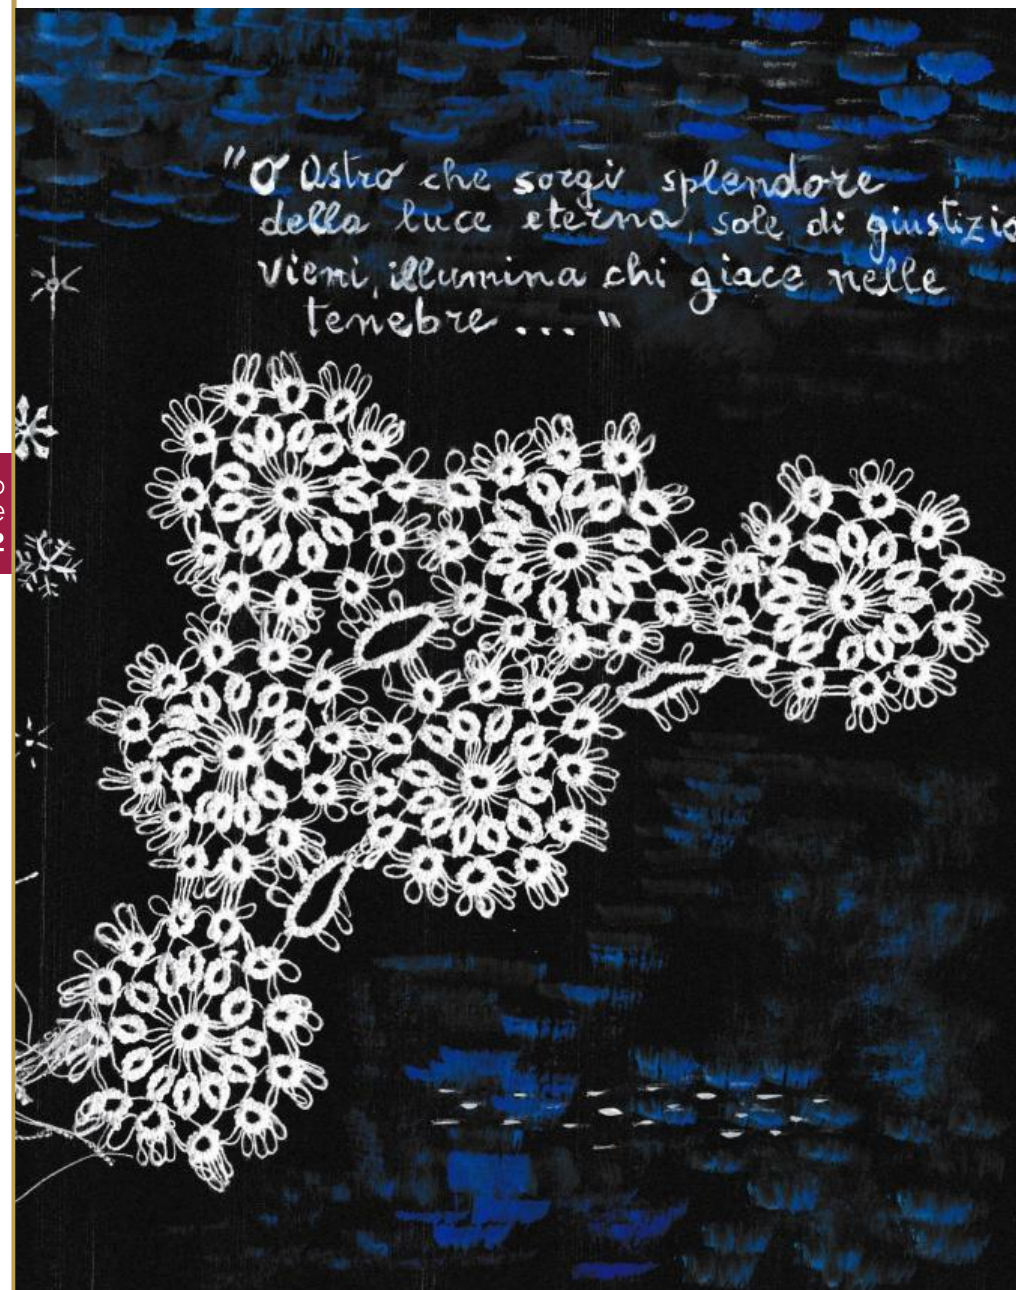 "O Astro che sorgi splendore
della luce eterna, sole di giustizia
vieni, illumina chi giace nelle
tenebre ... "